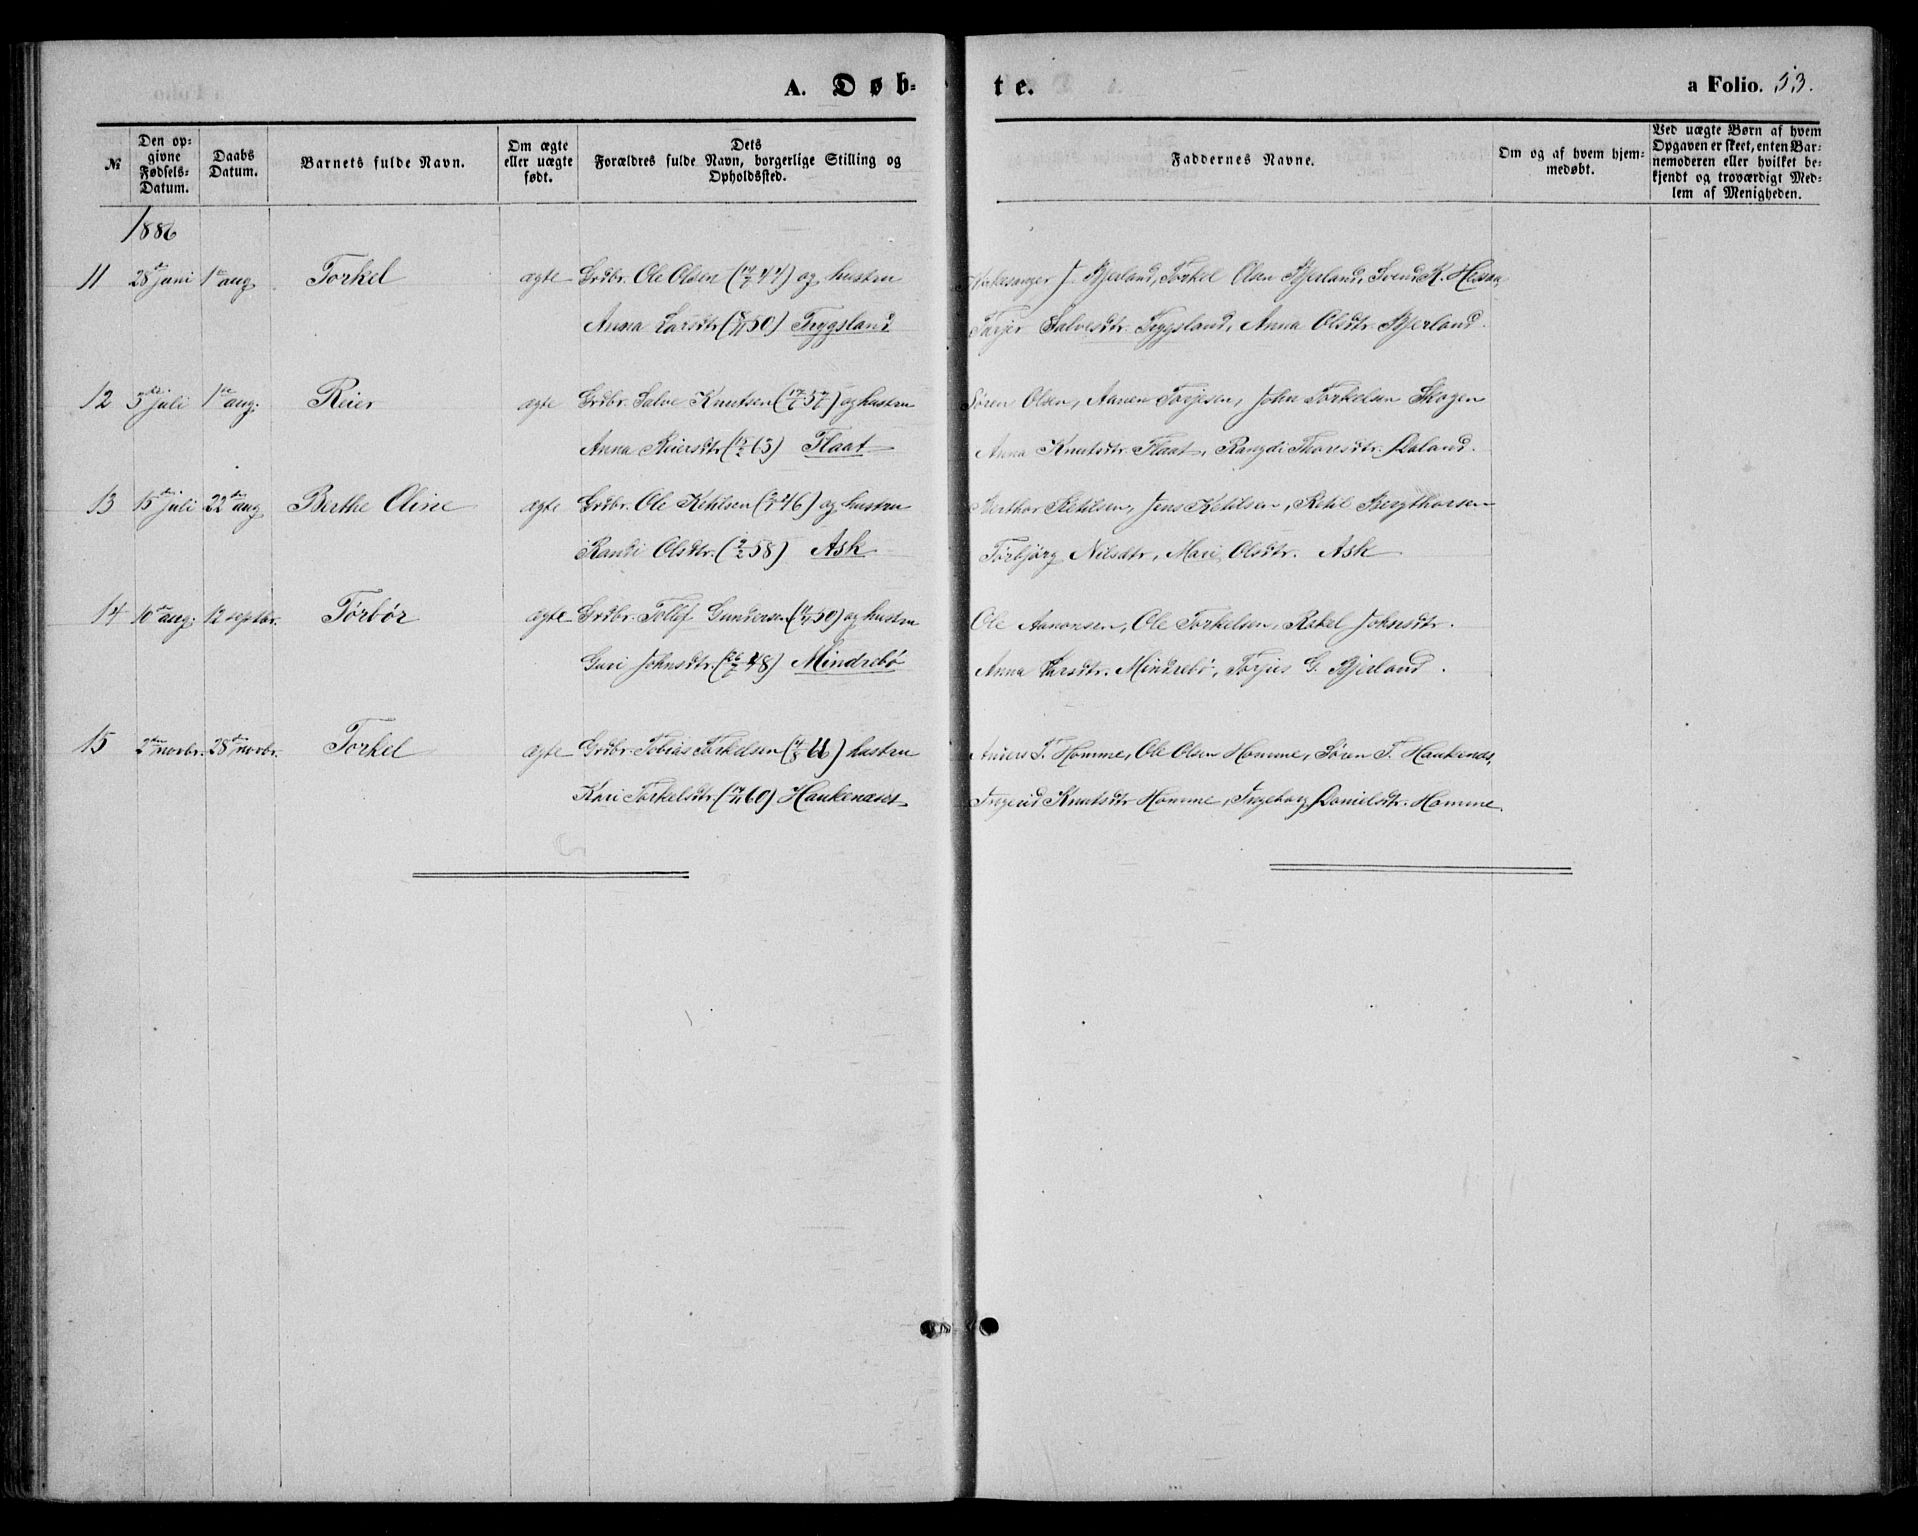 A. Døb-
te.
a Folio. 53.
№
Den op-
givne
Fødsels-
Datum.
Daabs
Datum.
Barnets fulde Navn.
Om ægte
eller uægte
født.
Dets
Forældres fulde Navn, borgerlige Stilling og
Opholdssted.
Faddernes Navne.
Om og af hvem hjem-
medøbt.
Ved uægte Børn af hvem
Opgaven er skeet, enten Bar-
nemoderen eller hvilket be-
kjendt og troværdigt Med-
lem af Menigheden.
1886
11 28de juni 1ste aug Torkel ægte Grdbr. Ole Olsen ( 44) og hustru
Anna Larsdtr ( 50) Trygsland
Kirkesanger J. Bjerland, Torkel Olsen Bjerland, Svend K.
Tarjer Salvesdtr. Trygsland, Anna Olsdtr. Bjerland.
12 5te juli 1ste aug: Reier ægte Grdbr. Salve Knutsen ( 57) og hustru
Anna Reiersdtr ( 63) Flaat
Søren Olsen, Aanen Torjesen, John Torkelsen Skogen
Anna Knutsdtr. Flaat, Rangdi Thoresdtr. Røland.
13 15de juli 22de aug Berthe Oline ægte Grdbr. Ole Ketilsen ( 46) og hustru
Randi Olsdtr. (9/2 58) Ask
Berthor Ketilsen, Jens Ketilsen, Ketil Bergthorsen
Torbjørg Nilsdtr, Mari Olsdtr. Ask
14 10de aug: 12 septbr. Tørbør ægte Grdbr. Tollef Gundersen ( 50) og hustru
Guri Johnsdtr. ( 48) Mindrebø
Ole Aanonsen, Ole Torkelsen, Rakel Johnsdtr.
Anna Larsdtr. Mindrebø, Torjus G. Bjerland.
15 2den novbr. 28de novbr. Torkel ægte Grdbr. Tobias Torkelsen ( ) hustru
Kari Torkelsdtr. ( 60) Haukenæset
Anders T. Homme, Ole Olsen Homme, Søren T. Haukenæs,
Ingerid Knutsdtr Homme, Ingeborg Danielsdtr. Homme.